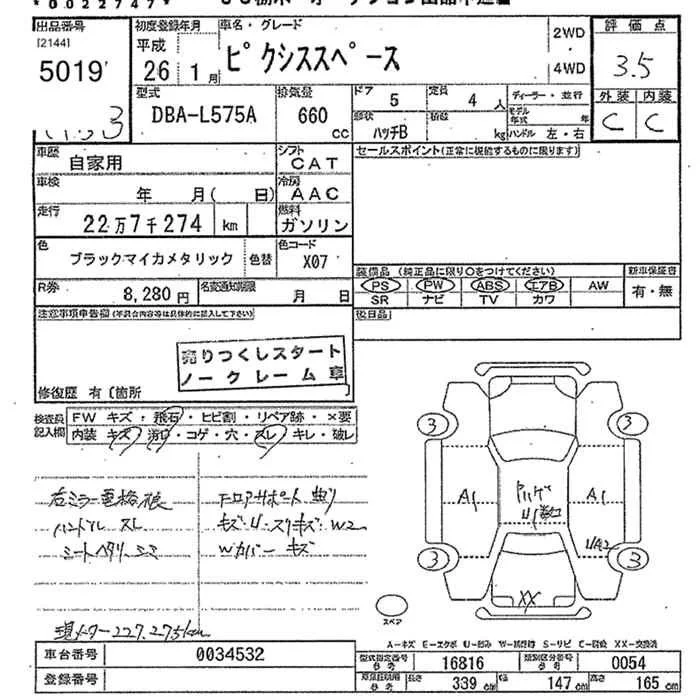 *0022747*
出品番号 初度登録年月 車名・グレード 2WD 評価点
[2144] 平成
5019 26 1月 ピクシススペース 4WD 3.5
型式 排気量 ドア 5 定員 4人 ディーラー・並行 外装 内装
DBA-L575A 660 cc 形状 ハッチB 積載 kg モデル年式 年 C C
ハンドル 左・右
車歴 自家用 シフト CAT セールスポイント(正常に機能するものに限ります)
車検 年 月( 日) 冷房 AAC
走行 22万7千274 km 燃料 ガソリン
色 ブラックマイカメタリック 色替 色コード X07
装備品 (純正品に限り○をつけてください) 新車保証書
PS PW ABS エアB AW 有・無
SR ナビ TV カワ
R券 8,280円 名変通知期限 月 日
後日品
注意事項申告欄(年式合内容等は具体的に記入して下さい)
売りつくしスタート
ノークレーム車
修復歴 有〔箇所 〕
検査員記入欄 FW キズ・飛石・ヒビ割・リペア跡・×要
内装 キズ・汚れ・コゲ・穴・スレ・キレ・破レ
右ミラー電格
ハンドル スレ
シートヘタリ
フロアサポート 曲り
Wカバー キズ
現メーター227,275km
3 3
A1 A1
3 3
XX
スペア
A-キズ E-エクボ U-凹み W-補修跡 S-サビ C-腐食 XX-交換済
車台番号 0034532 型式指定番号 参考 16816 類別区分番号 参考 0054
登録番号 長さ 339 cm 幅 147 cm 高さ 165 cm